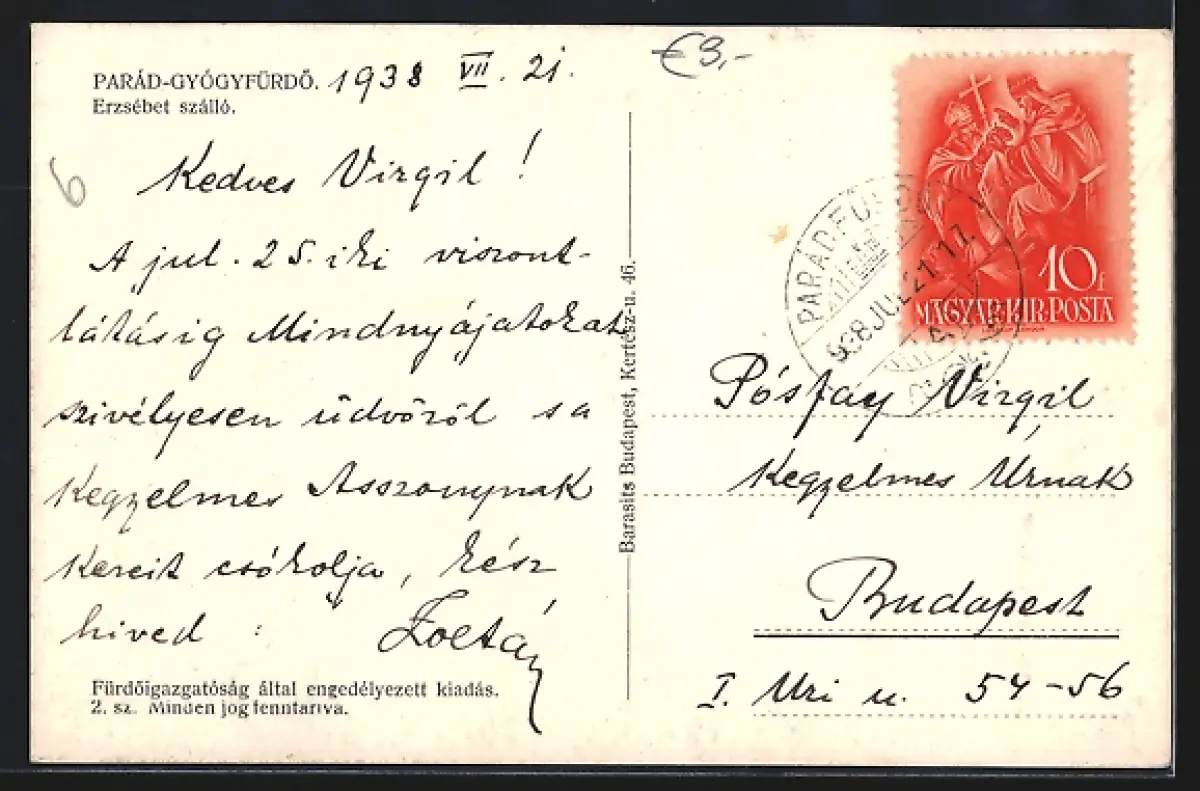 PARÁD-GYÓGYFÜRDŐ. 1938 VII. 21.
Erzsébet szálló.
€3,-
6
Kedves Virgil!
A jul. 25.iki viszont-
látásig Mindnyájatokat
szivélyesen üdvözöl s a
Kegyelmes Asszonynak
kezeit csókolja, kész
hived : Zoltán
Fürdőigazgatóság által engedélyezett kiadás.
2. sz. Minden jog fenntartva.
Barasits Budapest, Kertész-u. 46.
10f
MAGYAR·KIR·POSTA
PARÁDFÜRDŐ
938 JUL 21 17
Pósfay Virgil
Kegyelmes Urnak
Budapest
I. Uri u. 54-56